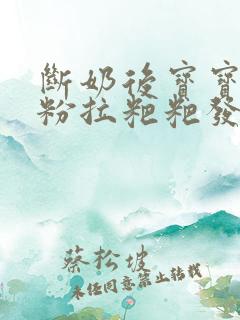 斷奶後寶寶
粉拉粑粑發
蔡松坡
未經同意禁止轉載